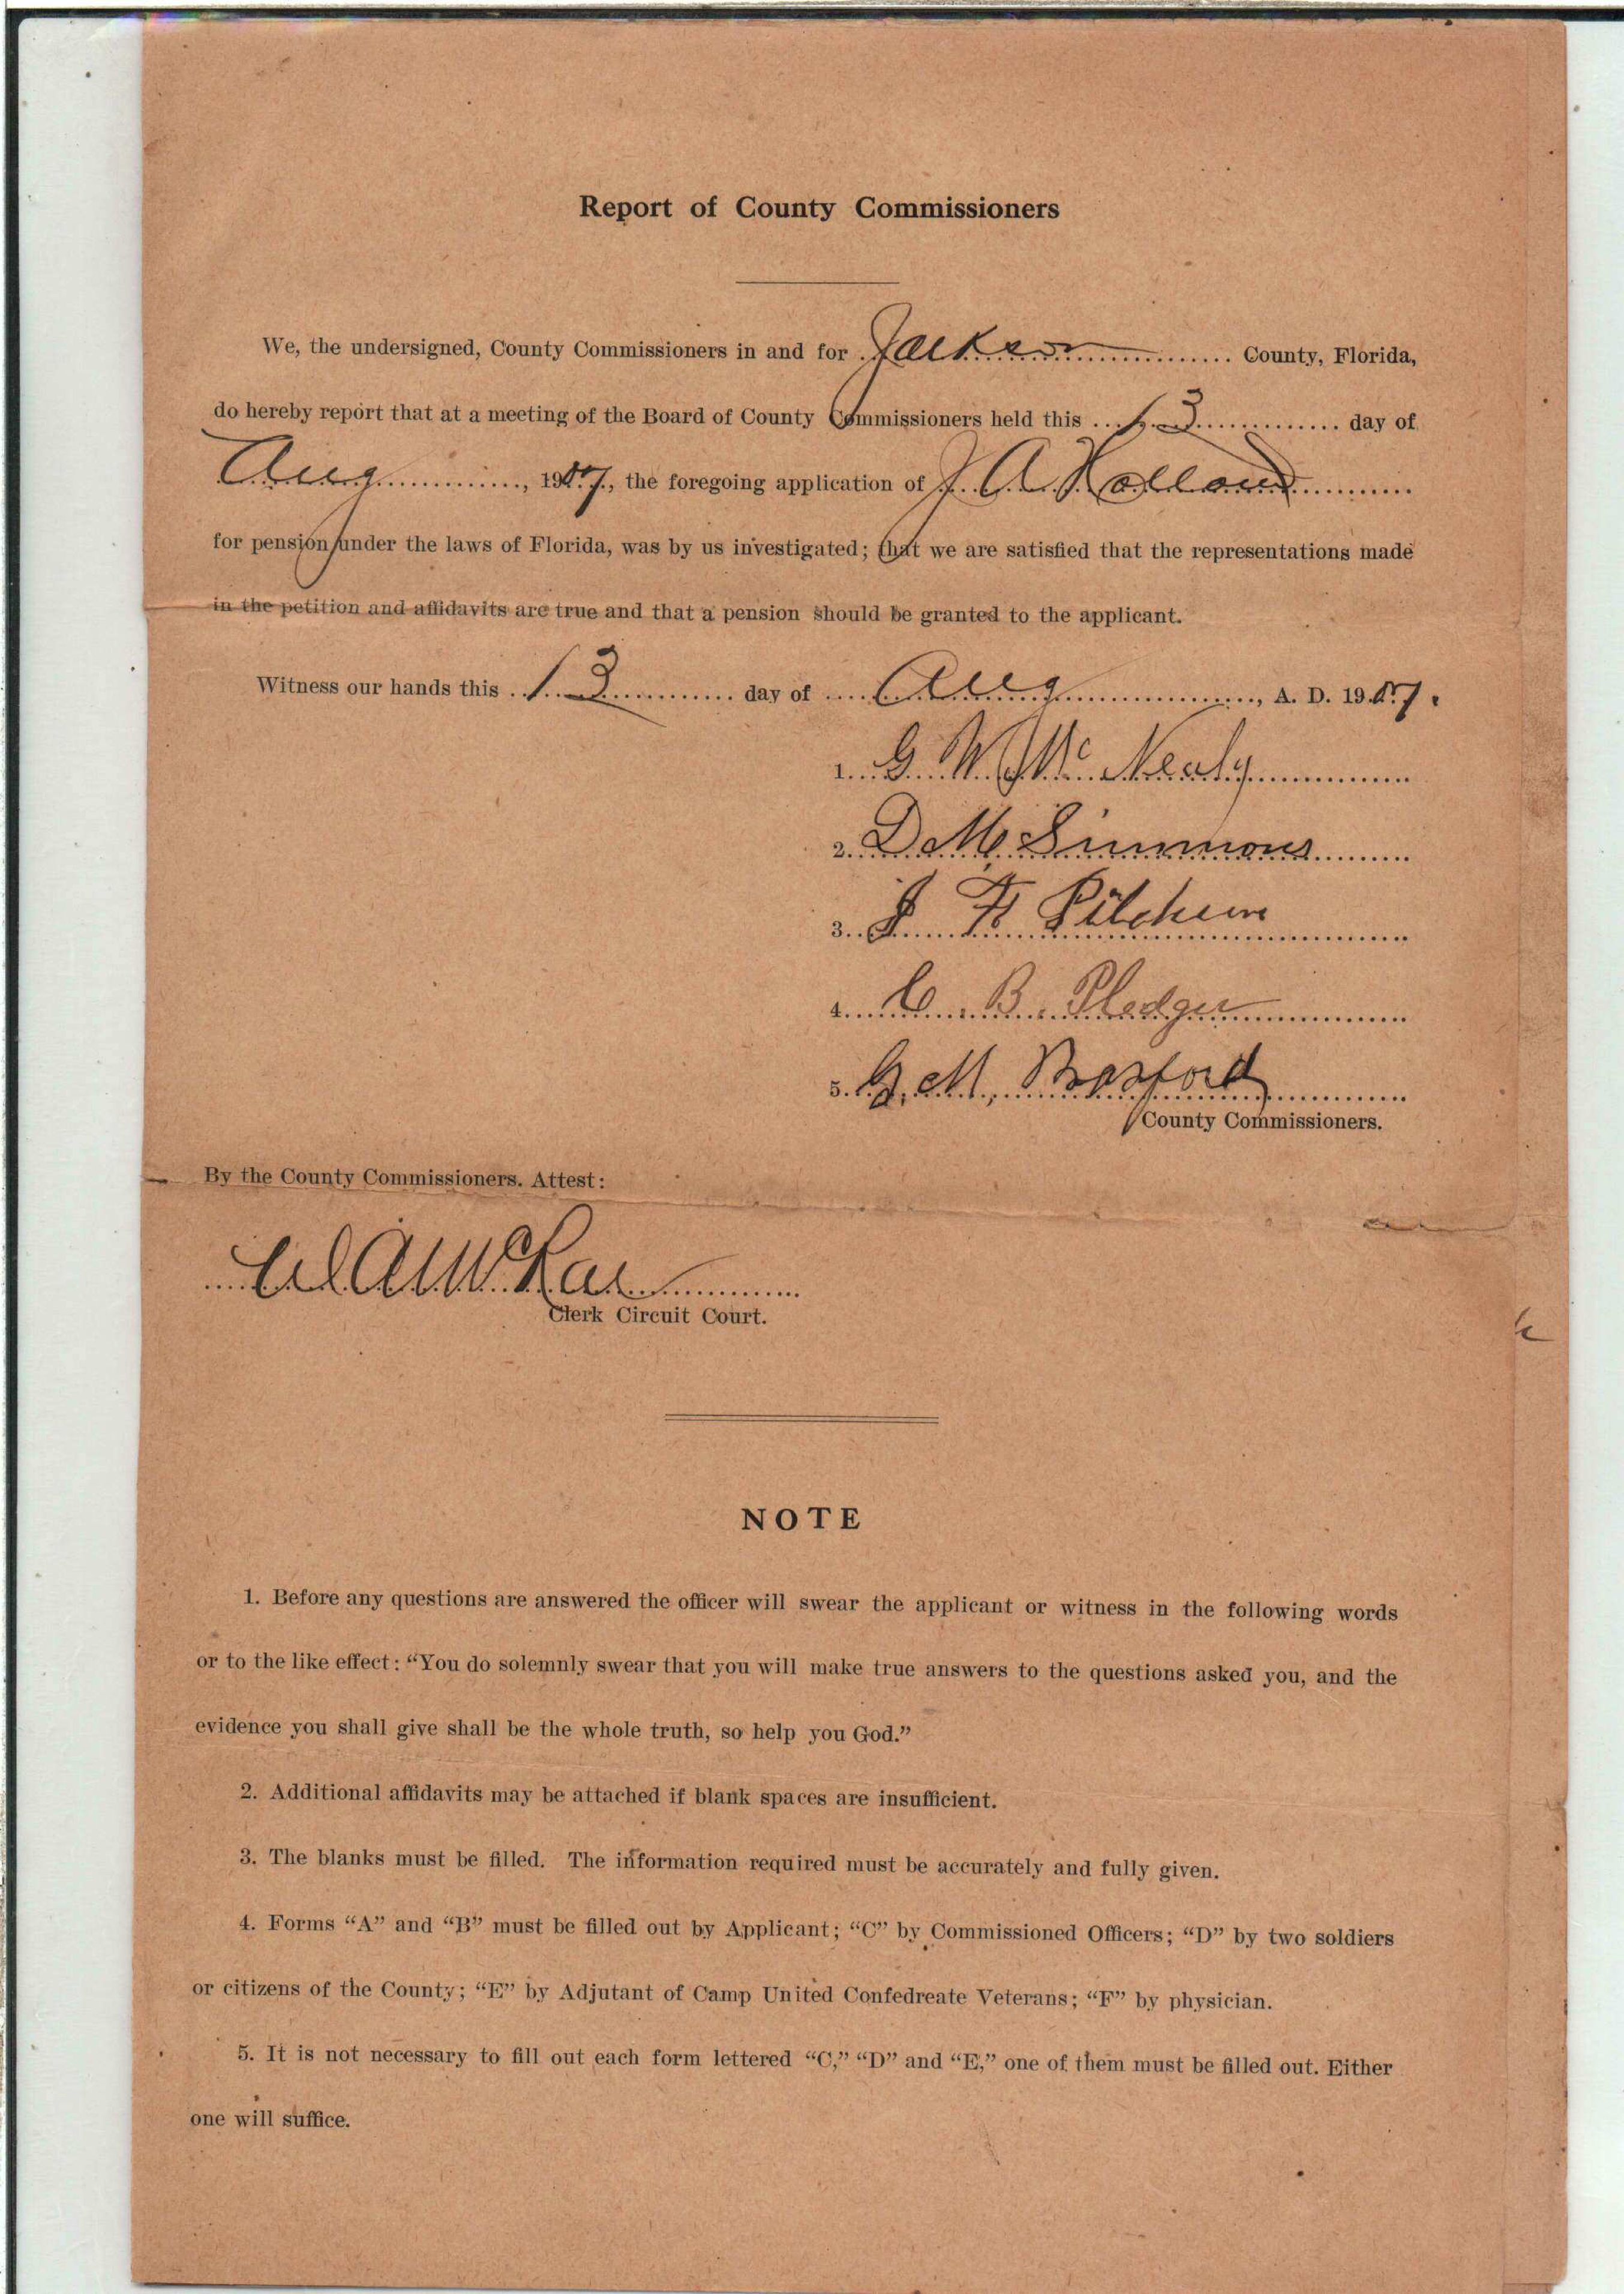 Report of County Commissioners
We, the undersigned, County Commissioners in and for Jackson County, Florida,
do hereby report that at a meeting of the Board of County Commissioners held this 13 day of
Aug, 1907, the foregoing application of J. A. Holland
for pension under the laws of Florida, was by us investigated; that we are satisfied that the representations made
in the petition and affidavits are true and that a pension should be granted to the applicant.
Witness our hands this 13 day of Aug, A. D. 1907.
1. G. W. McNealy
2. D M Simmons
3. J. F. Pilcher
4. C. B. Pledger
5. G. M. Basford
County Commissioners.
By the County Commissioners. Attest:
Clerk Circuit Court.
NOTE
1. Before any questions are answered the officer will swear the applicant or witness in the following words
or to the like effect: “You do solemnly swear that you will make true answers to the questions asked you, and the
evidence you shall give shall be the whole truth, so help you God.”
2. Additional affidavits may be attached if blank spaces are insufficient.
3. The blanks must be filled. The information required must be accurately and fully given.
4. Forms “A” and “B” must be filled out by Applicant; “C” by Commissioned Officers; “D” by two soldiers
or citizens of the County; “E” by Adjutant of Camp United Confedreate Veterans; “F” by physician.
5. It is not necessary to fill out each form lettered “C,” “D” and “E,” one of them must be filled out. Either
one will suffice.